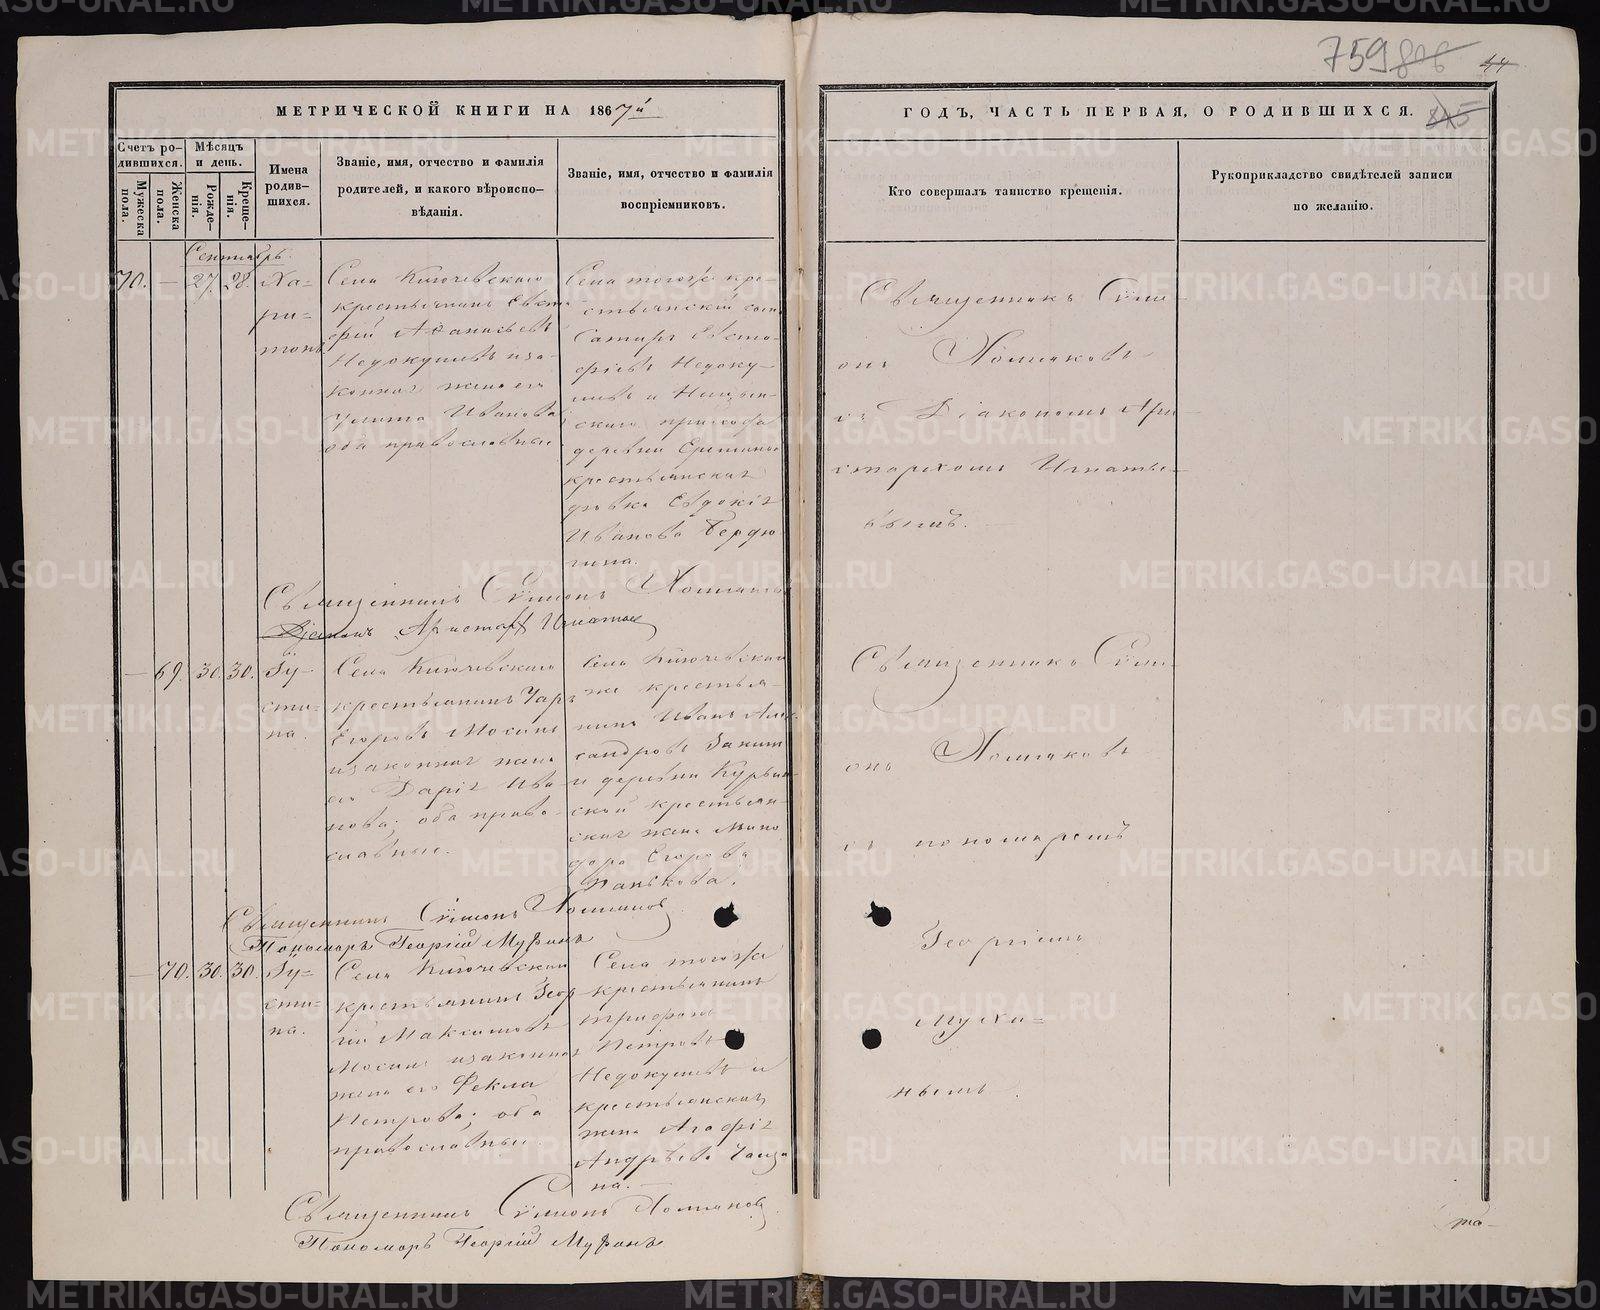 759 806 44
МЕТРИЧЕСКОЙ КНИГИ НА 1867й
ГОДЪ, ЧАСТЬ ПЕРВАЯ, О РОДИВШИХСЯ. 815
Счетъ ро-
дившихся.
Мужеска
пола.
Женска
пола.
Мѣсяцъ
и день.
Рожде-
нія.
Креще-
нія.
Имена
родив-
шихся.
Званіе, имя, отчество и фамилія
родителей, и какого вѣроиспо-
вѣданія.
Званіе, имя, отчество и фамилія
воспріемниковъ.
Кто совершалъ таинство крещенія.
Рукоприкладство свидѣтелей записи
по желанію.
Сентябрь.
70. — 27. 28.
Ха-
ри-
тонъ
Села Ключевскаго
крестьянинъ Евста
фій Аѳанасьевъ
Недокушевъ и за-
конная жена его
Улита Иванова
оба православные
Села тогожъ кре-
стьянскій сынъ
Евста-
фіевъ Недоку-
шевъ и
скаго прихода
деревни
крестьянская
дѣвка Евдокія
Иванова Бердю
гина.
Священникъ Сѵме-
онъ Хомяковъ
съ Діакономъ Ари-
стархомъ Игнатье-
вымъ.
Священникъ Сѵмеонъ Хомяковъ
Діаконъ Аристархъ Игнатьевъ
— 69. 30. 30.
Іу-
сти-
на.
Села Ключевскаго
крестьянинъ
Егоровъ Мосинъ
и законная жена
его Дарія Ива-
нова; оба право-
славные.
Села Ключевскаго
же крестья-
нинъ Иванъ Алек
сандровъ
и деревни Курьин-
ской крестьян-
ская жена Мино
дора Егорова
Панькова.
Священникъ Сѵме-
онъ Хомяковъ
съ пономаремъ
Георгіемъ
Мухи-
нымъ.
Священникъ Сѵмеонъ Хомяковъ
Пономарь Георгій Мухинъ
— 70. 30. 30.
Іу-
сти-
на.
Села Ключевскаго
крестьянинъ Геор-
гій Максимовъ
Мосинъ и законная
жена его Ѳекла
Петрова; оба
православные.
Села тогожа
крестьянинъ
Трифонъ
Петровъ
Недокушевъ и
крестьянская
жена Агафія
Андрѣева
на.
Священникъ Сѵмеонъ Хомяковъ
Пономарь Георгій Мухинъ
та-
METRIKI.GASO-URAL.RU